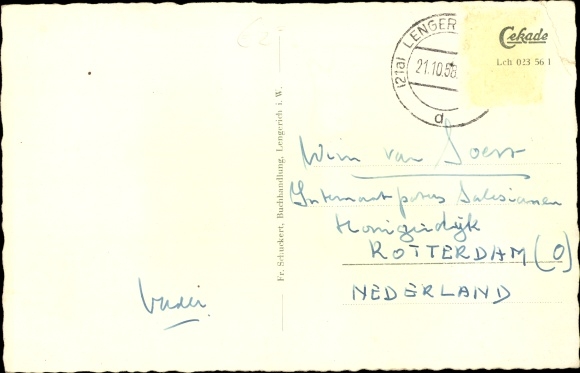 Cekade
Lch 023 56 1
(21a) LENGER
21.10.58
d
Fr. Schnekert, Buchhandlung, Lengerich i. W.
Wim van Soest
Internaat paters Salesianen
Honingerdijk
ROTTERDAM (O)
NEDERLAND
Vader